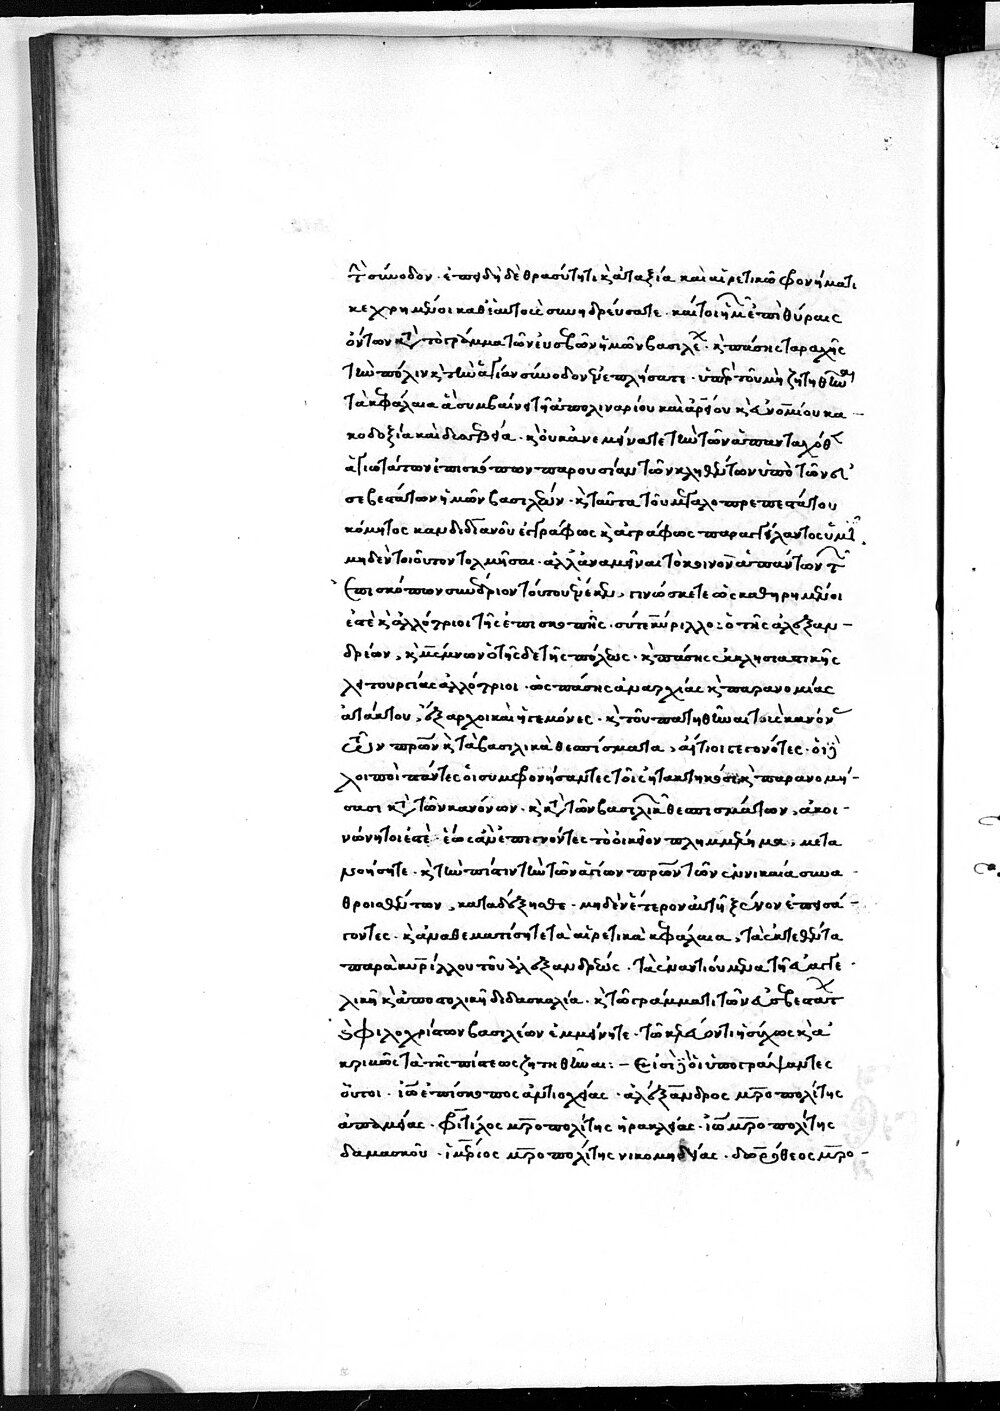 τ(ὴν) σύνοδον· ἐπειδὴ δὲ θρασύτητι κ(αὶ) ἀταξία καὶ αἱρετικῶ φρονήματι
κεχρημένοι καθ' ἑαυτοὺς συνηδρεύσατε· καίτοι ἡμ(ῶν) ἐπὶ θύραις
ὄντων κ(α)τ(ὰ) τὸ γράμμα τῶν εὐσεβῶν ἡμῶν βασιλέ(ων)· κ(αὶ) πάσης ταραχῆς
τὴν πόλιν κ(αὶ) τὴν ἁγίαν σύνοδον ἐνεπλήσατε· ὑπὲρ τοῦ μὴ ζητηθῆν(αι)
τὰ κεφάλαια ἃ συμβαίνει τῆ ἀπολιναρίου καὶ ἀρείου κ(αὶ) εὐνομίου κα-
κοδοξία καὶ δυσσεβεία· κ(αὶ) οὐκ ἀνεμείνατε τὴν τῶν ἁπανταχόθ(εν)
ἁγιωτάτων ἐπισκόπων παρουσίαν τῶν κληθέντων ὑπὸ τῶν εὐ-
σεβεστάτων ἡμῶν βασιλέων· κ(αὶ) ταῦτα τοῦ μεγαλοπρεπεστάτου
κόμητος κανδιδιανοῦ ἐγγράφως κ(αὶ) ἀγράφως παραγγείλαντος ὑμῖν
μηδὲν τοιοῦτον τολμῆσαι· ἀλλ' ἀναμεῖναι τὸ κοινὸν ἁπάντων τ(ῶν)
ἐπισκόπων συνέδριον τούτου ἕνεκεν, γινώσκετε ὡς καθηρημένοι
ἐστὲ κ(αὶ) ἀλλότριοι τῆς ἐπισκοπῆς· σύ τε κύριλλος ὁ τῆς ἀλεξαν-
δρέων, κ(αὶ) μέμνων ὁ τῆς δε τῆς πόλεως· κ(αὶ) πάσης ἐκκλησιαστικῆς
λειτουργίας ἀλλότριοι· ὡς πάσης ἀναρχίας κ(αὶ) παρανομίας
ἀτάκτου, ἔξαρχοι καὶ ἡγεμόνες· κ(αὶ) τοῦ πατηθῆναι τοὺς κανόν(ας)
τῶν π(ατέ)ρων κ(αὶ) τὰ βασιλικὰ θεσπίσματα, αἴτιοι γεγονότες· οἱ δὲ
λοιποὶ πάντες οἱ συμφωνήσαντες τοῖς ἠτακτηκόσι κ(αὶ) παρανομή-
σασι κ(α)τ(ὰ) τῶν κανόνων· κ(αὶ) κ(α)τ(ὰ) τῶν βασιλικῶν θεσπισμάτων, ἀκοι-
νώνητοι ἐστὲ· ἕως ἂν ἐπιγνόντες τὸ οἰκεῖον πλημμέλημα, μετα-
νοήσητε· κ(αὶ) τὴν πίστιν τὴν τῶν ἁγίων π(ατέ)ρων τῶν ἐν νικαία συνα-
θροισθέντων, καταδέξησθε· μηδὲν ἕτερον αὐτῆ ξένον ἐπεισά-
γοντες· κ(αὶ) ἀναθεματίσητε τὰ αἱρετικὰ κεφάλαια, τὰ ἐκτεθέντα
παρὰ κυρίλλου τοῦ ἀλεξανδρείας· τὰ ἐναντιούμενα τῆ εὐαγγε-
λικῆ κ(αὶ) ἀποστολικῆ διδασκαλία· κ(αὶ) τῶ γράμματι τῶν εὐσεβεστάτ(ων)
κ(αὶ) φιλοχρίστων βασιλέων ἐμμείνητε· τῶ κελεύοντι ἡσύχως κ(αὶ) ἀ-
κριβῶς τὰ τῆς πίστεως ζητηθῆναι:– Εἰσὶ δὲ οἱ ὑπογράψαντες
οὗτοι· ἰω(άννης) ἐπίσκοπος ἀντιοχείας· ἀλέξανδρος μ(ητ)ροπολίτης
ἀπαμείας· φριτίλος μ(ητ)ροπολίτης ἡρακλείας· ἰω(άννης) μ(ητ)ροπολίτης
δαμασκοῦ· ἱμέριος μ(ητ)ροπολίτης νικομηδείας· δωρόθεος μ(ητ)ρο-